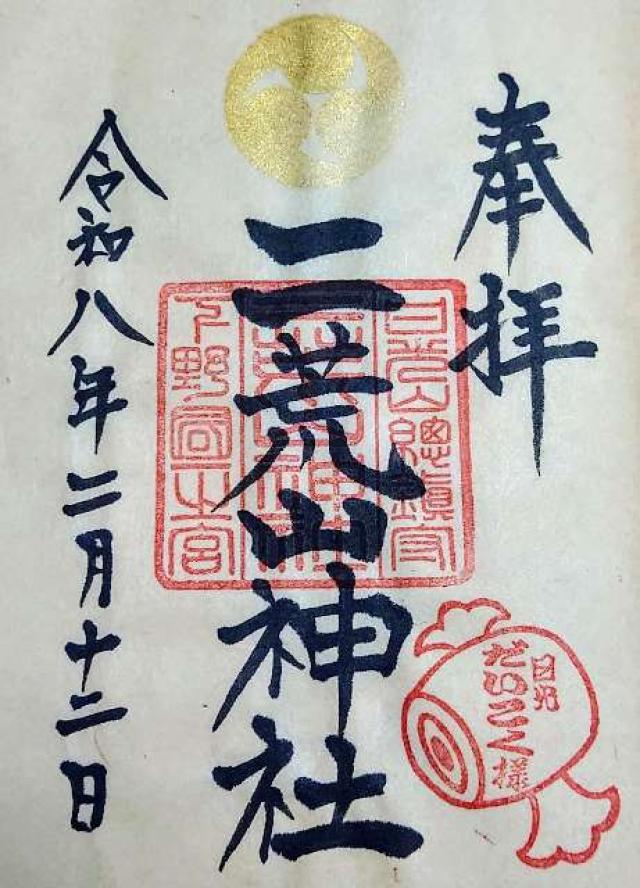 奉拝
日光山總鎮守
二荒山神社
下野國一之宮
日光
だいこく様
令和八年二月十二日